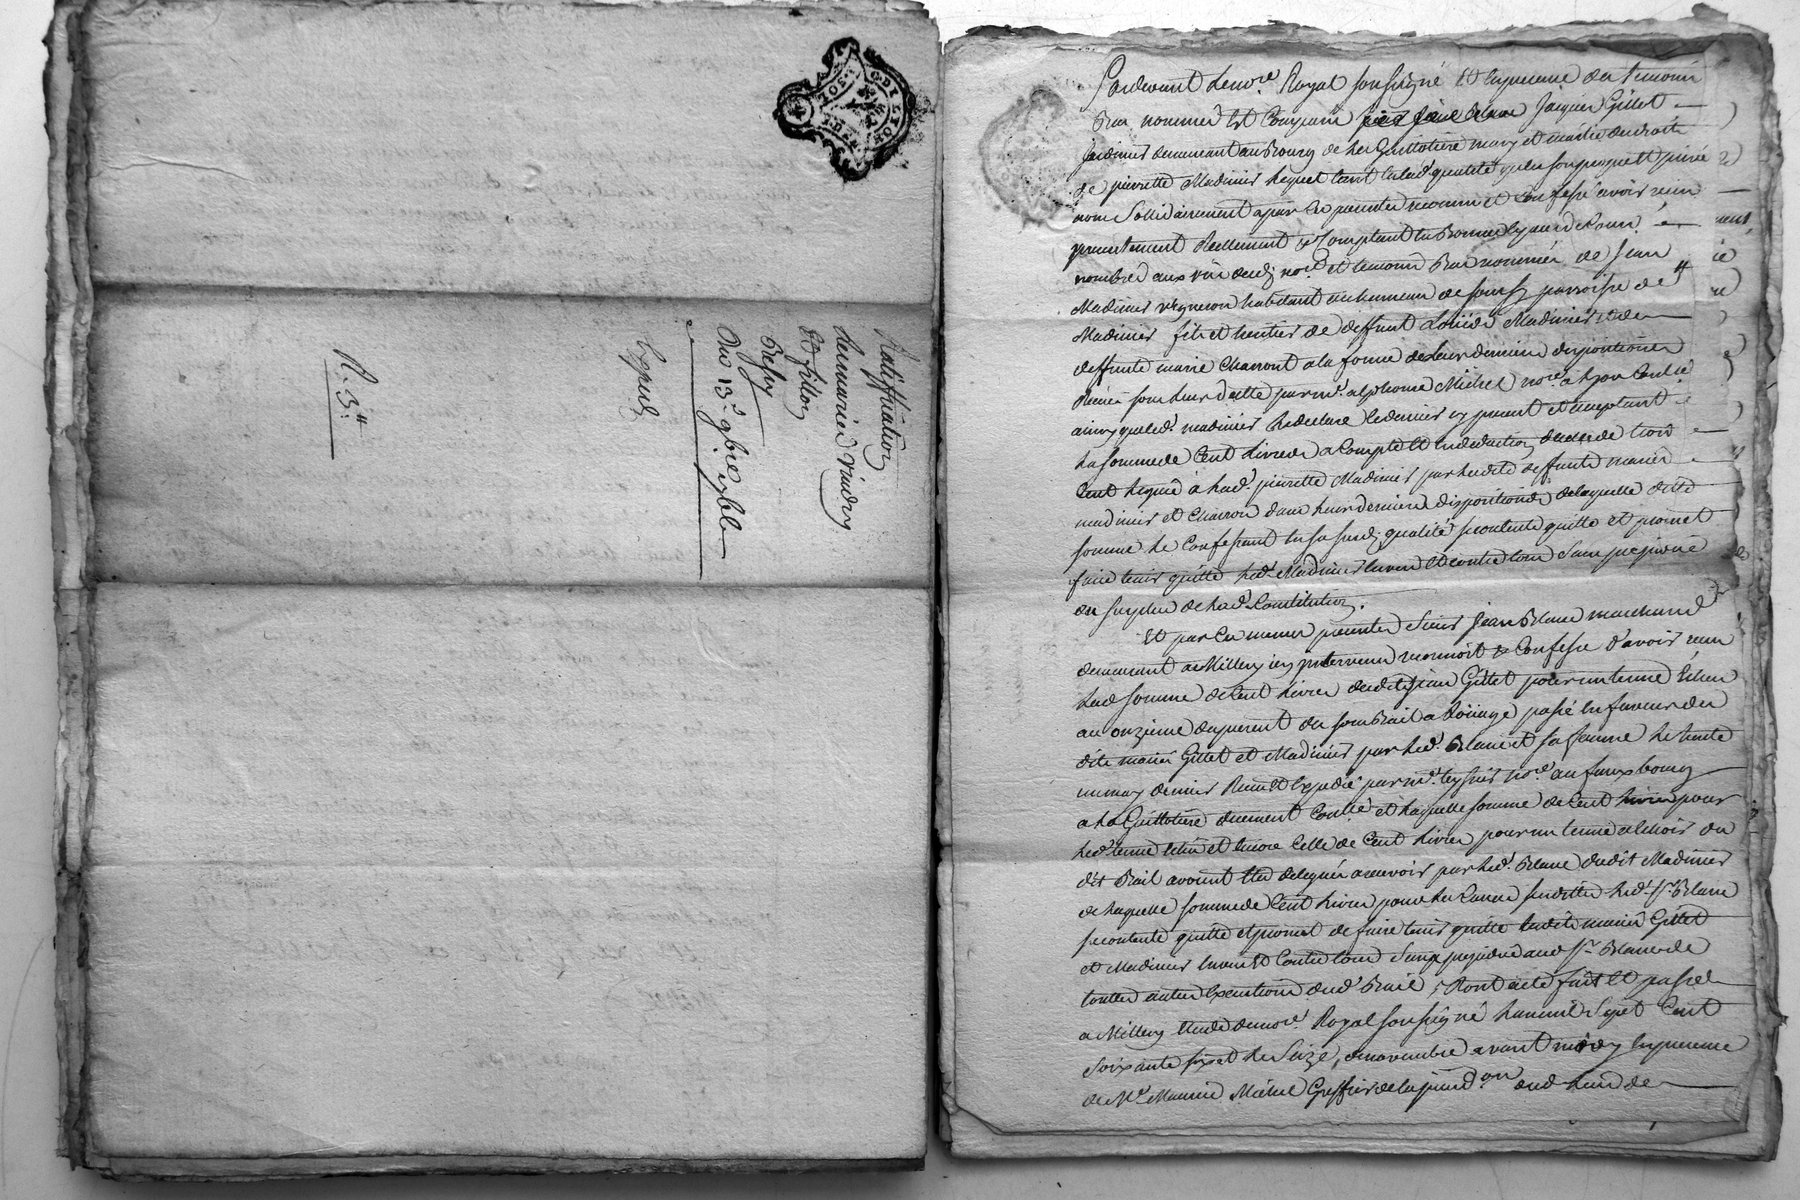 Ratiffication
Remarier Vindry
Et fillon
Du 13.e 9bre 1766
Expédié
R. 3#
Pardevant Le no.re Royal soussigné Et En presence des temoins
Bas nommés Est Comparu Jacques Gillet
Jardinier demeurant au Bourg de La Guillotiere mary et maitre des droits
de pierrette Madinier Lequel tant En lad. qualité qu'en son propre et privé
nom Solidairement a par Ces presentes reconnu et Confessé avoir reçu
presentement Reellement et Comptant En Bonnes Especes de Cours
nombrés aux vûe dud. no.re et temoins Bas nommés de Jean
Madinier vigneron habitant au hameau de parroisse de
Madinier fils et heritier de deffunt Loüis Madinier et de
deffunte marie Charront a la forme de Leurs derniere dispositions
Reçûes sous Leur datte par m.e alphonse Michel no.re a Lyon Controllé
ainsy que led. madinier Le declare Ce dernier icy present et acceptant
La somme de Cent Livres a Compte et En deduction de Celle de trois
Cent Leguée à Lad. pierrette Madinier par Lesdits deffunts mariés
madinier et Charron dans Leurs dernieres dispositions, de laquelle dite
somme Le Confessant En sa susd. qualité se contente quitte et promet
faire tenir quitte led. Madinier Envers Et contre tous Sans prejudice
du surplus de Lad. Constitution.
Et par Ces memes presentes Sieur Jean Blanc marchand
demeurant a Millery icy intervenu reconnoit & Confesse d'avoir reçu
Lad. somme de Cent Livres dudit Gillet pour un terme Echeu
au onzieme du present du sous Bail a Loüage passé En faveur des
dits mariés Gillet et Madinier par led. Blanc et sa femme le trente
un may dernier Reçu Et Expedié par m.e teyssier no.re au fauxbourg
a La Guillotiere duement Con.lé et Laquelle somme de Cent Livres pour
led. terme Echû et Encore Celle de Cent Livres pour un terme a Echoir du
dit Bail avoient Eté deleguées a recevoir par led. Blanc dudit Madinier
de Laquelle somme de Cent Livres pour Les Causes susdittes led. S.r Blanc
se contente quitte et promet de faire tenir quitte lesdits mariés Gillet
et Madinier Envers Et Contre tous Sans prejudice aud. S.r Blanc de
touttes autres Executions dud. Bail ; Dont acte fait Et passé
a Millery Etude dud. no.re Royal soussigné L'an mil Sept Cent
Soixante six et Le Seize, de novembre avant midy En presence
de M.e Maurice Michel Greffier de la jurisd.on dud. Lieu de